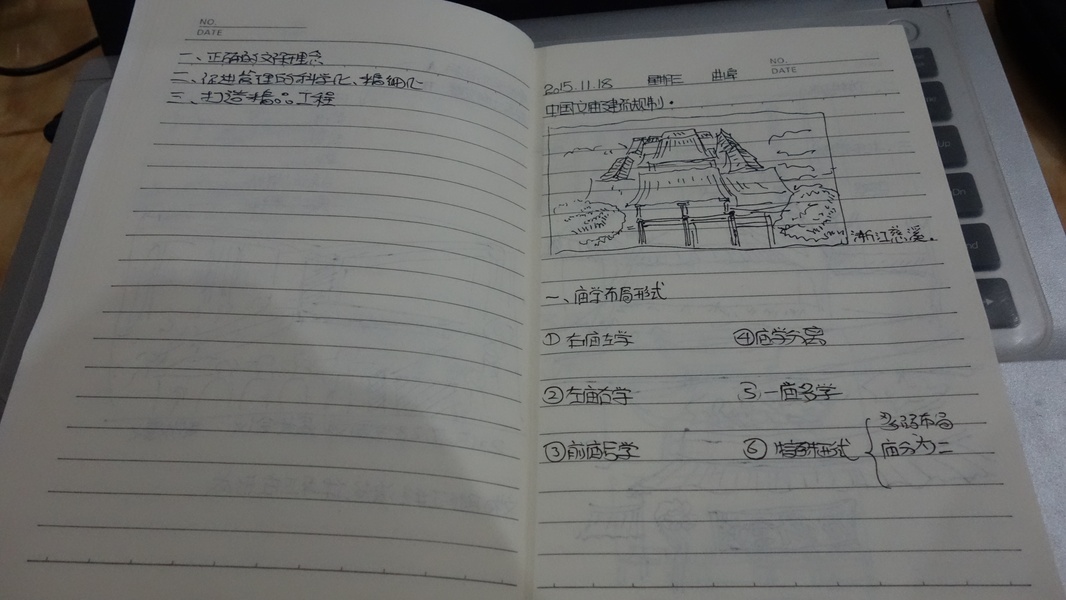 NO.
DATE
一、正确的文保理念
二、管理的科学化、精细化
三、打造精品工程
NO.
DATE
2015.11.18 星期三 曲阜
中国文庙建筑规制.
浙江慈溪.
一、庙学布局形式
① 右庙左学 ④庙学分离
② 左庙右学 ⑤ 一庙多学
③前庙后学 ⑥ 特殊形式
布局
庙分为二